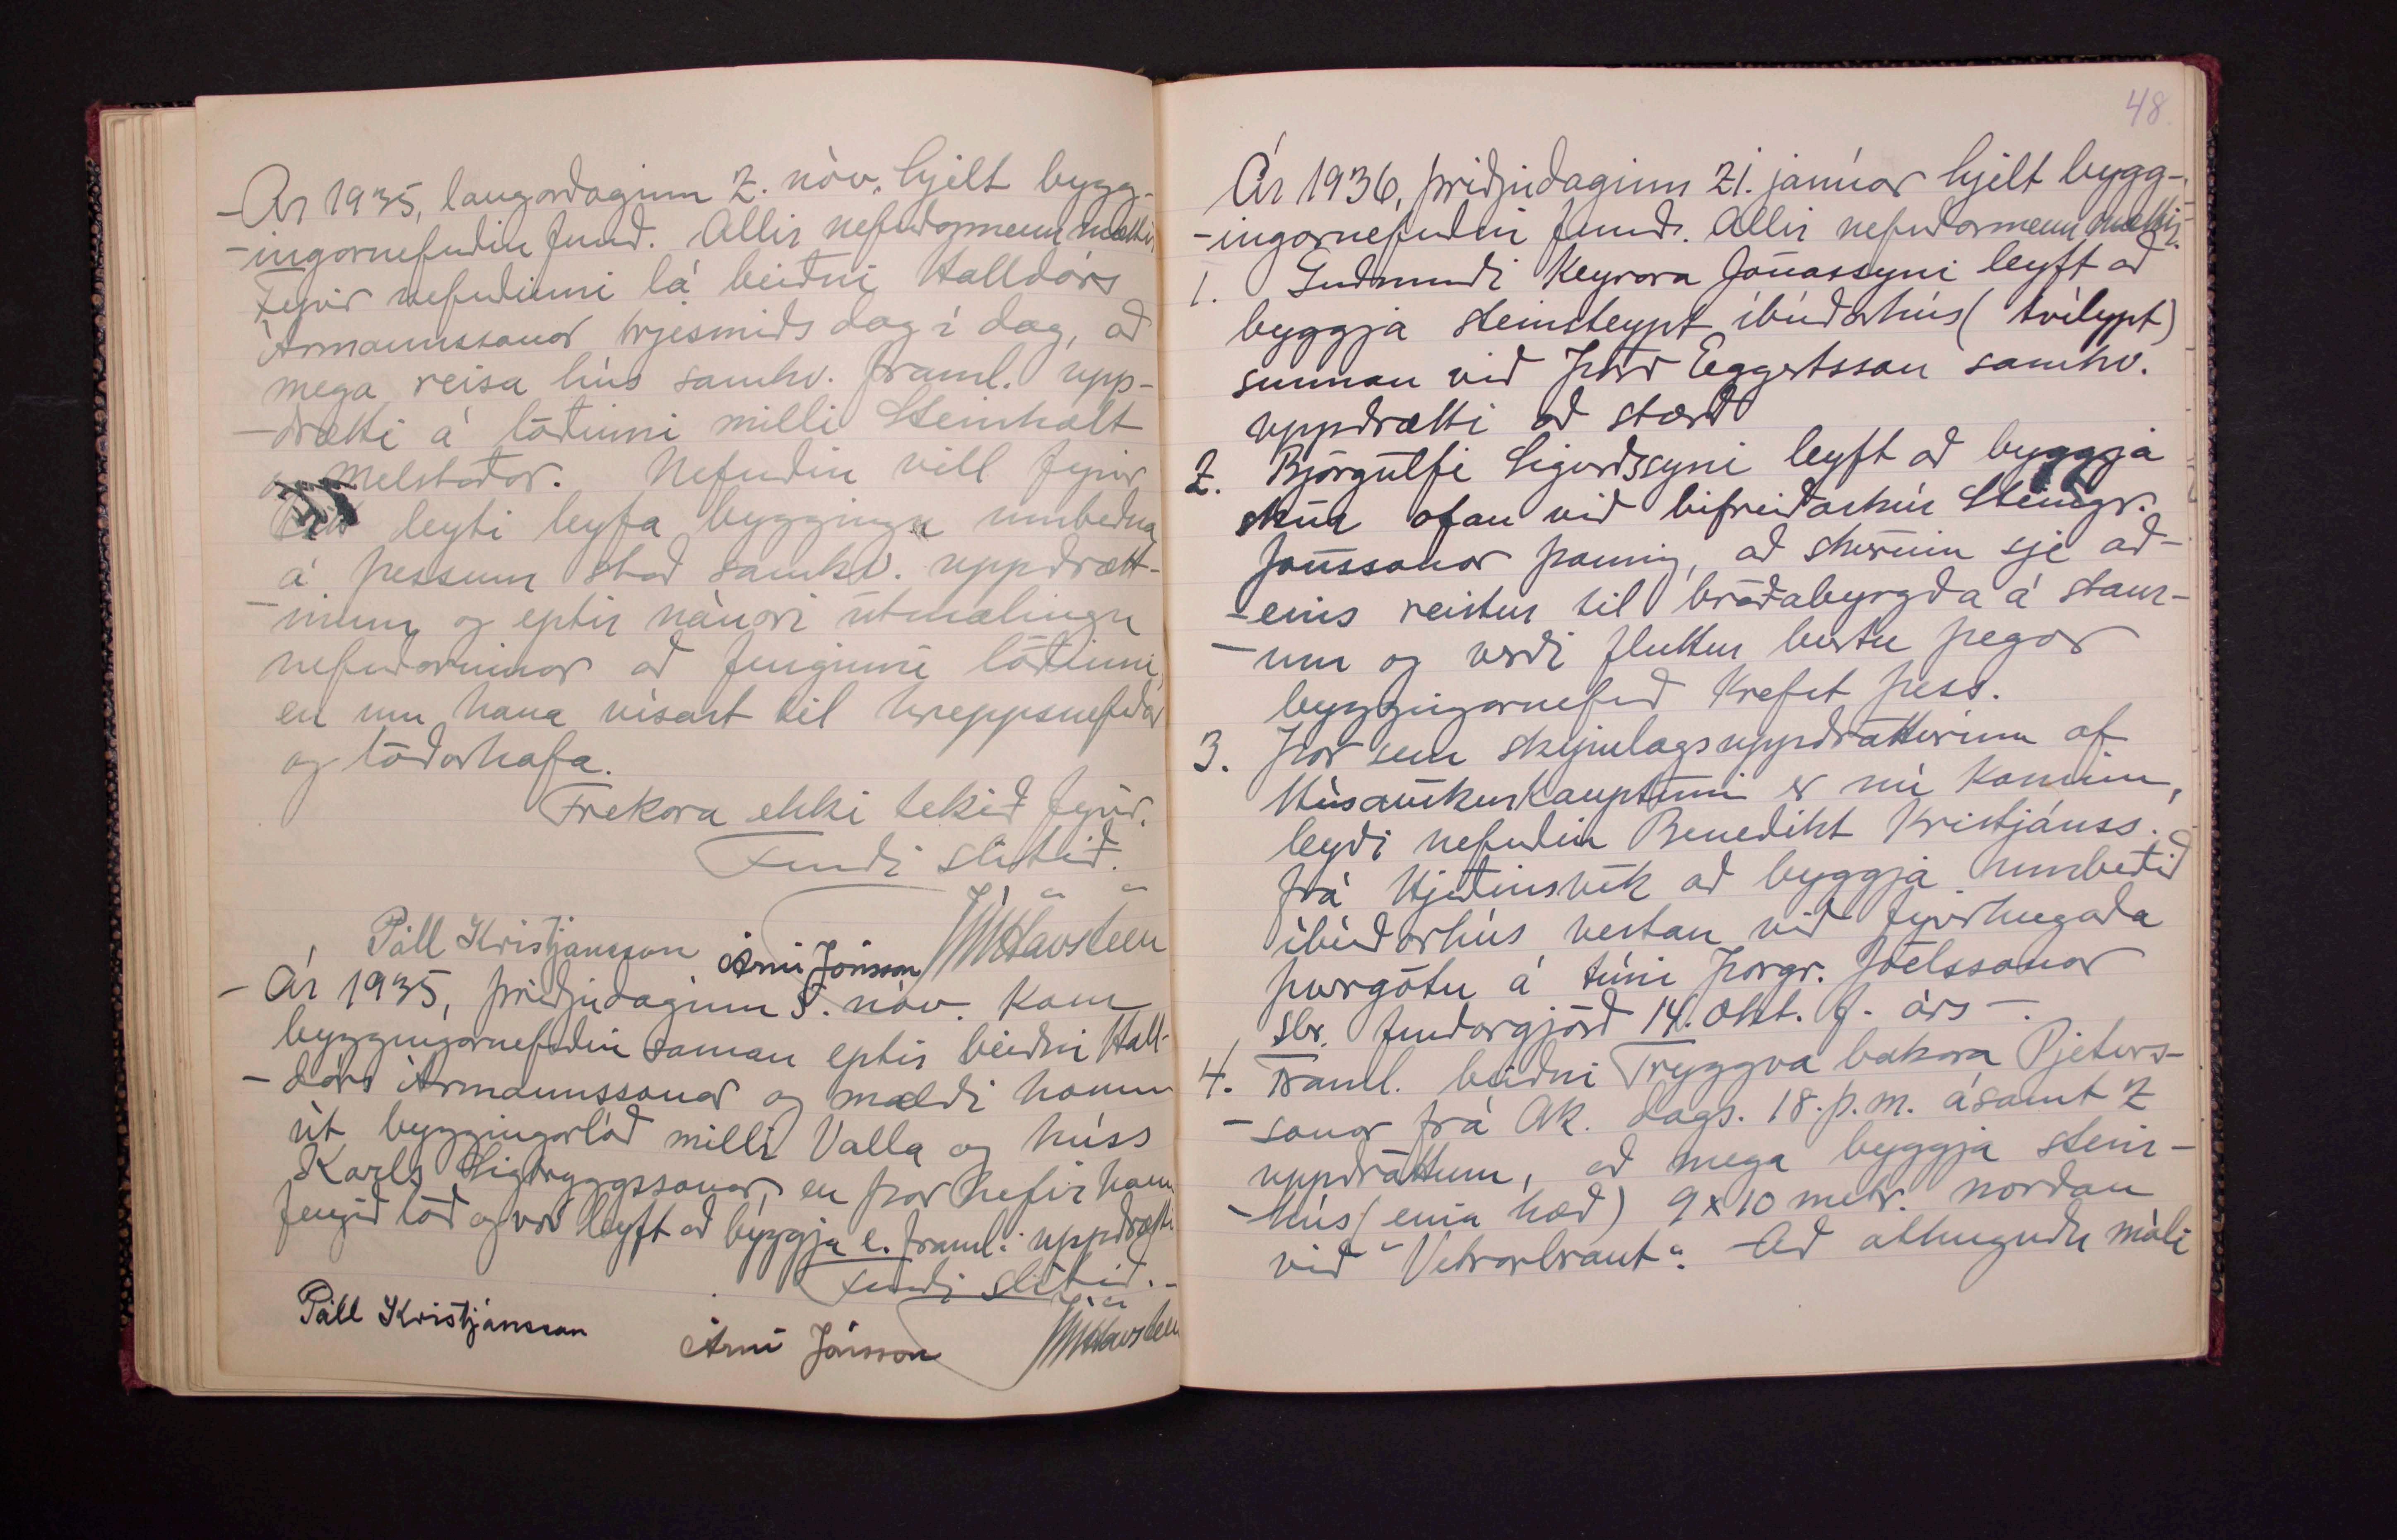 Ár 1935, laugardaginn 2. nóv. hjelt bygg-
-ingarnefndin fund. Allir nefndarmenn mættir.
Fyrir nefndinni lá beiðni Halldórs
Ármannssonar trjesmiðs dag í dag, að
mega reisa hús samkv. framl. upp-
-drætti á lóðinni milli Steinholt
og Melstaðar. Nefndin vill fyrir
sitt leyti leyfa byggingu umbeðna
á þessum stað samkv. uppdrætt-
-inum og eptir nánari útmælingu
nefndarinnar að fenginni lóðinni,
en um hana vísast til hreppsnefndar
og lóðarhafa.
Frekara ekki tekið fyrir.
Fundi slitið.
Páll Kristjánsson Árni Jónsson JHHavsteen
- Ár 1935, þriðjudaginn 5. nóv. kom
byggingarnefndin saman eptir beiðni Hall-
-dórs Ármannssonar og mældi honum
út byggingarlóð milli Valla og húss
Karls Sigtryggssonar, en þar hefir hann
fengið lóð og var leyft að byggja e. framl. uppdrætti.
Fundi slitið. -
Páll Kristjánsson Árni Jónsson JHHavsteen
48
Ár 1936, þriðjudaginn 21. janúar hjelt bygg-
-ingarnefndin fund. Allir nefndarmenn mættir.
1. Guðmundi keyrara Jónassyni leyft að
byggja steinsteypt íbúðarhús (tvílypt)
sunnan við Þórð Eggertsson samkv.
uppdrætti að stærð
2. Björgúlfi Sigurðssyni leyft að byggja
skúr ofan við bifreiðarskúr Steingr.
Jónssonar þannig, að skúrinn sje að-
-eins reistur til bráðabyrgða á staur-
-um og verði fluttur burtu þegar
byggingarnefnd krefst þess.
3. Þar sem skipulagsuppdrátturinn af
Húsavíkurkauptúni er nú kominn,
leyfði nefndin Benedikt Kristjánss.
frá Hjeðinsvík að byggja umbeðið
íbúðarhús vestan við fyrirhugaða
þvergötu á túni Þorgr. Jóelssonar
sbr. fundargjörð 14. okt. f. árs -.
4. Framl. beiðni Tryggva bakara Pjeturs-
-sonar frá Ak. dags. 18. þ.m. ásamt 2
uppdráttum, að mega byggja stein-
-hús (eina hæð) 9 x 10 metr. norðan
við "Vetrarbraut". Að athuguðu máli